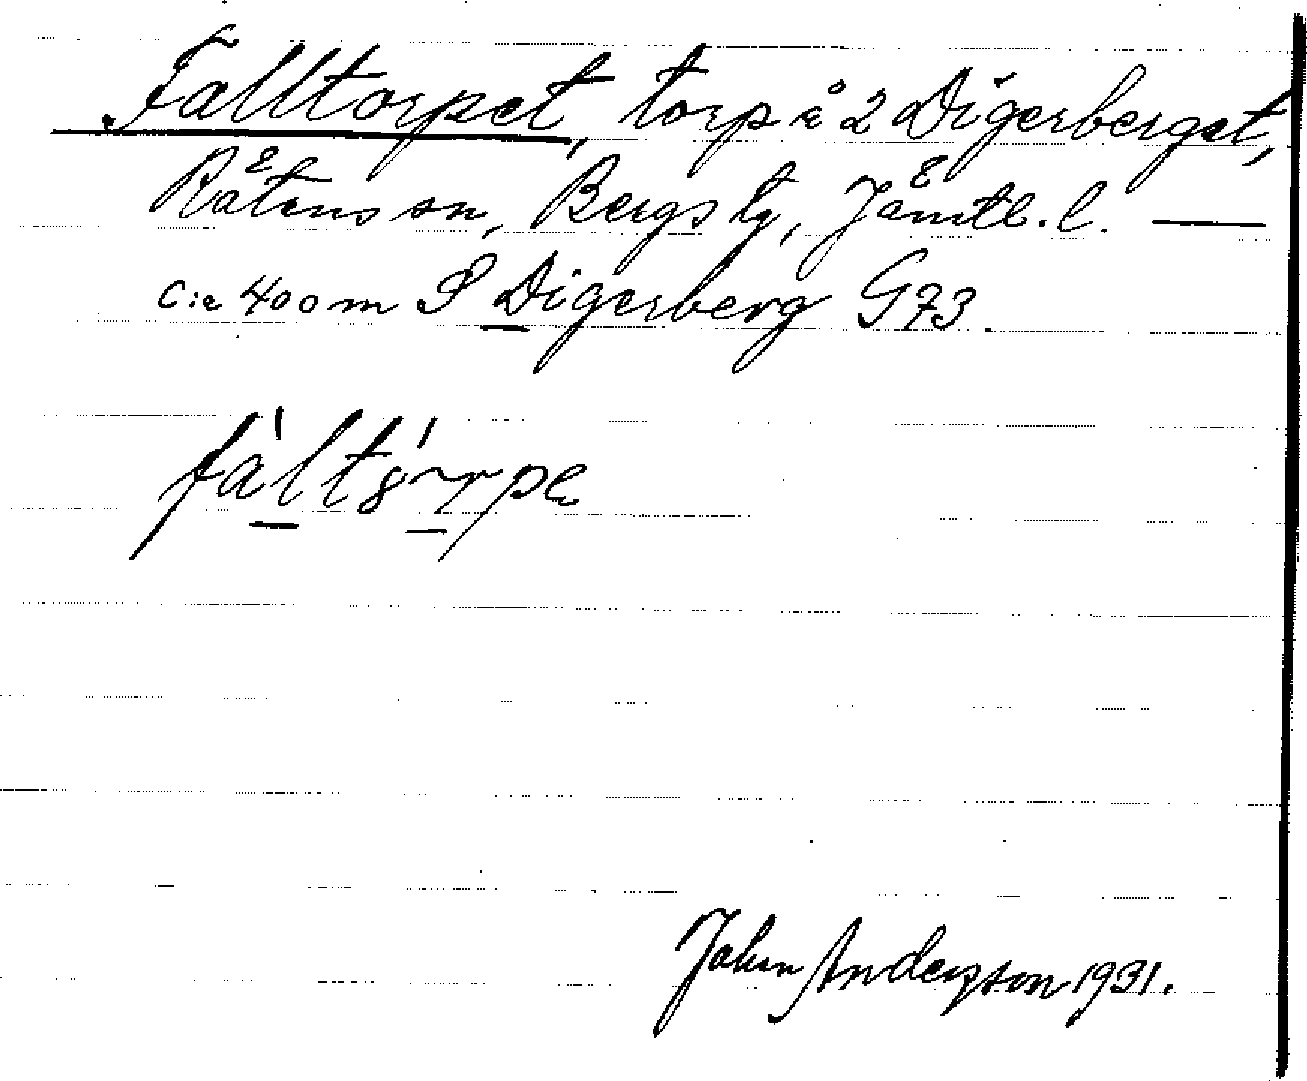 Falltorpet, torp å 2 Digerberget,
Rätans sn, Bergs tg, Jämtl. l. —
c:a 400 m S Digerberg G73.
fàltórpe
John Anderzson 1931.